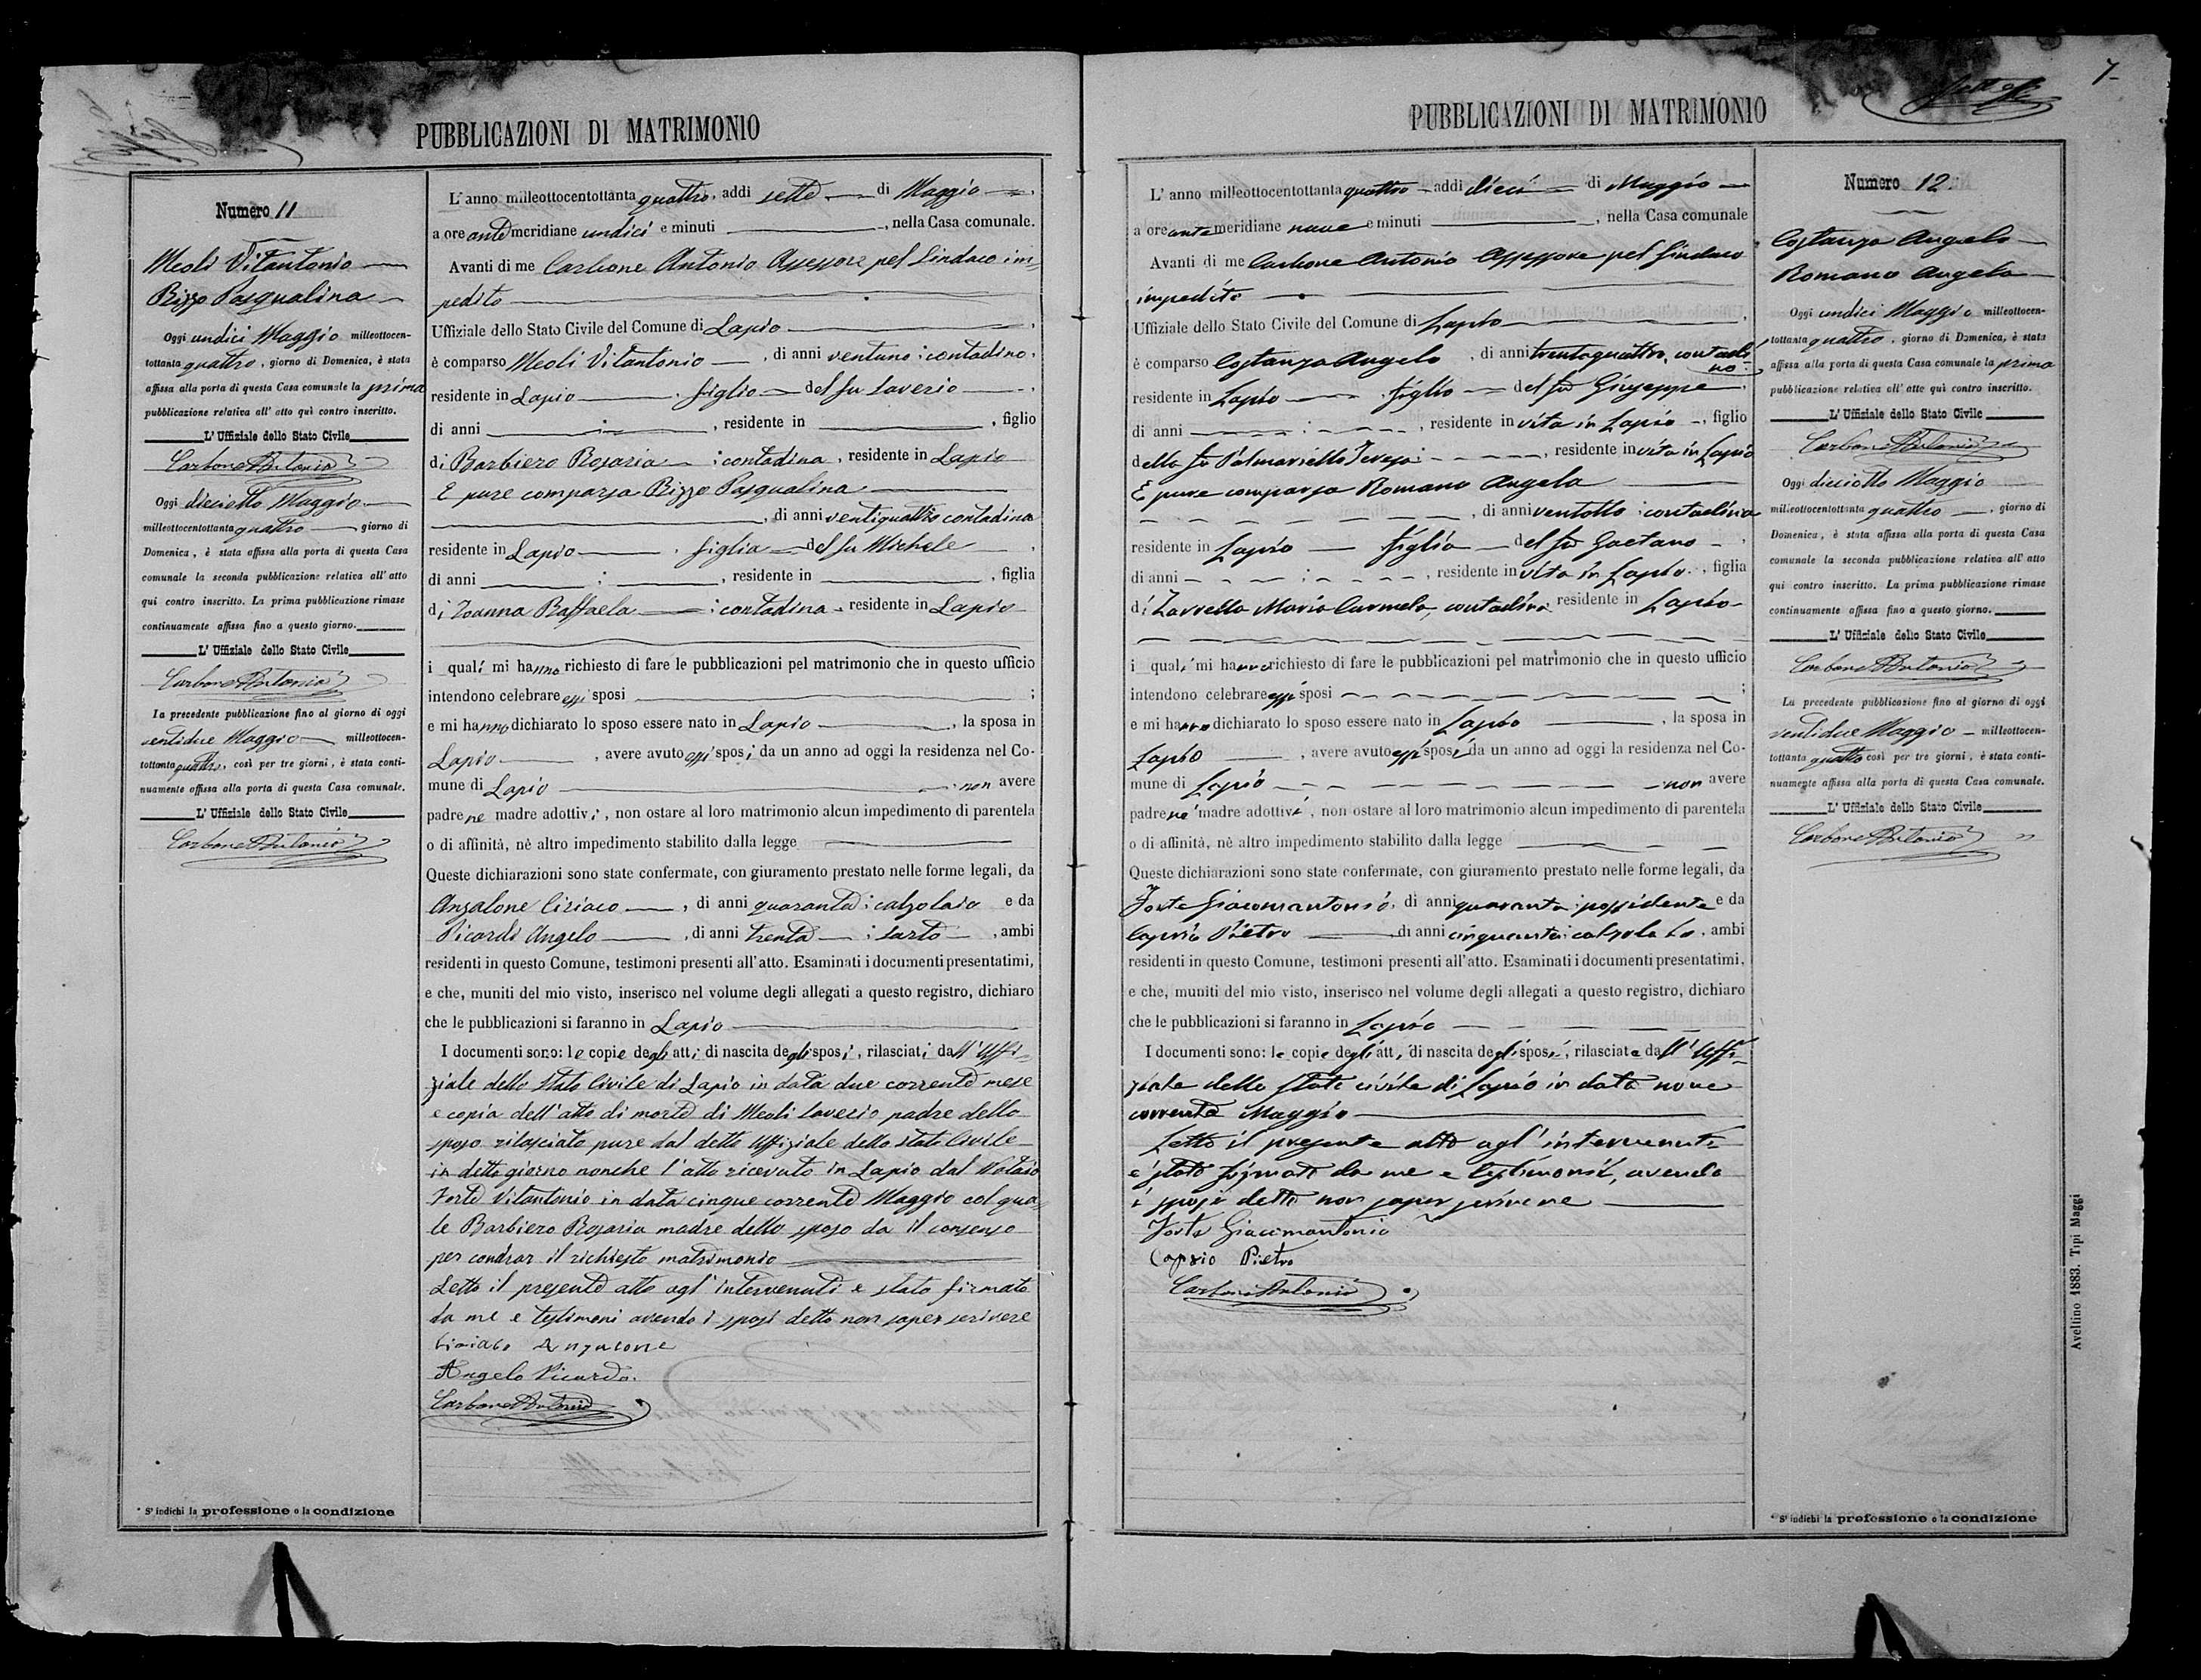 PUBBLICAZIONI DI MATRIMONIO
Numero 11
Meoli Vitantonio
Rizzo Pasqualina
Oggi undici Maggio milleottocen-
tottanta quattro, giorno di Domenica, è stata
affissa alla porta di questa Casa comunale la prima
pubblicazione relativa all' atto quì contro inscritto.
L' Uffiziale dello Stato Civile
Carbone Antonio
Oggi dieciotto Maggio
milleottocentottanta quattro giorno di
Domenica, è stata affissa alla porta di questa Casa
comunale la seconda pubblicazione relativa all' atto
qui contro inscritto. La prima pubblicazione rimase
continuamente affissa fino a questo giorno.
L' Uffiziale dello Stato Civile
Carbone Antonio
La precedente pubblicazione fino al giorno di oggi
ventidue Maggio milleottocen-
tottanta quattro, così per tre giorni, è stata conti-
nuamente affissa alla porta di questa Casa comunale.
L' Uffiziale dello Stato Civile
Carbone Antonio
* S' indichi la professione o la condizione
L' anno milleottocentottanta quattro, addi sette di Maggio
a ore ante meridiane undici e minuti , nella Casa comunale.
Avanti di me Carbone Antonio Assessore pel Sindaco im-
pedito
Uffiziale dello Stato Civile del Comune di Lapio
è comparso Meoli Vitantonio , di anni ventuno ; contadino,
residente in Lapio , figlio del fu Saverio
di anni ; , residente in , figlio
di Barbiero Rosaria ; contadina , residente in Lapio
E pure comparsa Rizzo Pasqualina
, di anni ventiquattro contadina
residente in Lapio , figlia del fu Michele
di anni ; , residente in , figlia
di Zoanna Raffaela ; contadina , residente in Lapio
i quali mi hanno richiesto di fare le pubblicazioni pel matrimonio che in questo ufficio
intendono celebrare essi sposi ;
e mi hanno dichiarato lo sposo essere nato in Lapio , la sposa in
Lapio , avere avuto essi sposi da un anno ad oggi la residenza nel Co-
mune di Lapio ; non avere
padre nè madre adottivi, non ostare al loro matrimonio alcun impedimento di parentela
o di affinità, nè altro impedimento stabilito dalla legge
Queste dichiarazioni sono state confermate, con giuramento prestato nelle forme legali, da
Anzalone Ciriaco , di anni quaranta ; calzolaio e da
Picardi Angelo , di anni trenta ; sarto , ambi
residenti in questo Comune, testimoni presenti all'atto. Esaminati i documenti presentatimi,
e che, muniti del mio visto, inserisco nel volume degli allegati a questo registro, dichiaro
che le pubblicazioni si faranno in Lapio
I documenti sono: le copie degli atti di nascita degli sposi, rilasciati dall' Uffi-
ziale dello Stato Civile di Lapio in data due corrente mese
e copia dell'atto di morte di Meoli Saverio padre dello
sposo rilasciato pure dal detto Uffiziale dello Stato Civile
in detto giorno nonche l'atto ricevuto in Lapio dal Notaio
Forte Vitantonio in data cinque corrente Maggio col qua-
le Barbiero Rosaria madre dello sposo da il consenso
per contrar il richiesto matrimonio
Letto il presente atto agl' intervenuti e stato firmato
da me e testimoni avendo i sposi detto non saper scrivere
Ciriaco Anzalone
Angelo Picardi
Carbone Antonio
PUBBLICAZIONI DI MATRIMONIO
7
L' anno milleottocentottanta quattro addi dieci di Maggio
a ore ante meridiane nove e minuti , nella Casa comunale
Avanti di me Carbone Antonio Assessore pel Sindaco
impedito
Uffiziale dello Stato Civile del Comune di Lapio
è comparso Costanza Angelo , di anni trentaquattro, contadi
no
residente in Lapio , figlio del fu Giuseppe
di anni ; , residente in vita in Lapio , figlio
della fu Palmariello Teresa ; , residente in vita in Lapio
E pure comparsa Romano Angela
, di anni ventotto ; contadina
residente in Lapio figlia del fu Gaetano
di anni ; , residente in vita in Lapio , figlia
di Zarrella Maria Carmela, contadina residente in Lapio
i quali mi hanno richiesto di fare le pubblicazioni pel matrimonio che in questo ufficio
intendono celebrare essi sposi ;
e mi hanno dichiarato lo sposo essere nato in Lapio , la sposa in
Lapio , avere avuto essi sposi da un anno ad oggi la residenza nel Co-
mune di Lapio ; non avere
padre nè madre adottivi, non ostare al loro matrimonio alcun impedimento di parentela
o di affinità, nè altro impedimento stabilito dalla legge
Queste dichiarazioni sono state confermate, con giuramento prestato nelle forme legali, da
Forte Giacomantonio, di anni quaranta ; possidente e da
Caprio Pietro , di anni cinquanta ; calzolaio, ambi
residenti in questo Comune, testimoni presenti all'atto. Esaminati i documenti presentatimi,
e che, muniti del mio visto, inserisco nel volume degli allegati a questo registro, dichiaro
che le pubblicazioni si faranno in Lapio
I documenti sono: le copie degli atti di nascita degli sposi, rilasciate dall' Uffi-
ziale dello Stato civile di Lapio in data nove
corrente Maggio
Letto il presente atto agl' intervenuti
e stato firmato da me e testimonii, avendo
i sposi detto non saper scrivere
Forte Giacomantonio
Caprio Pietro
Carbone Antonio
Numero 12
Costanza Angelo
Romano Angela
Oggi undici Maggio milleottocen-
tottanta quattro, giorno di Domenica, è stata
affissa alla porta di questa Casa comunale la prima
pubblicazione relativa all' atto quì contro inscritto.
L' Uffiziale dello Stato Civile
Carbone Antonio
Oggi dicciotto Maggio
milleottocentottanta quattro , giorno di
Domenica, è stata affissa alla porta di questa Casa
comunale la seconda pubblicazione relativa all' atto
qui contro inscritto. La prima pubblicazione rimase
continuamente affissa fino a questo giorno.
L' Uffiziale dello Stato Civile
Carbone Antonio
La precedente pubblicazione fino al giorno di oggi
ventidue Maggio milleottocen-
tottanta quattro così per tre giorni, è stata conti-
nuamente affissa alla porta di questa Casa comunale.
L' Uffiziale dello Stato Civile
Carbone Antonio
* S' indichi la professione o la condizione
Avellino 1883. Tipi Maggi